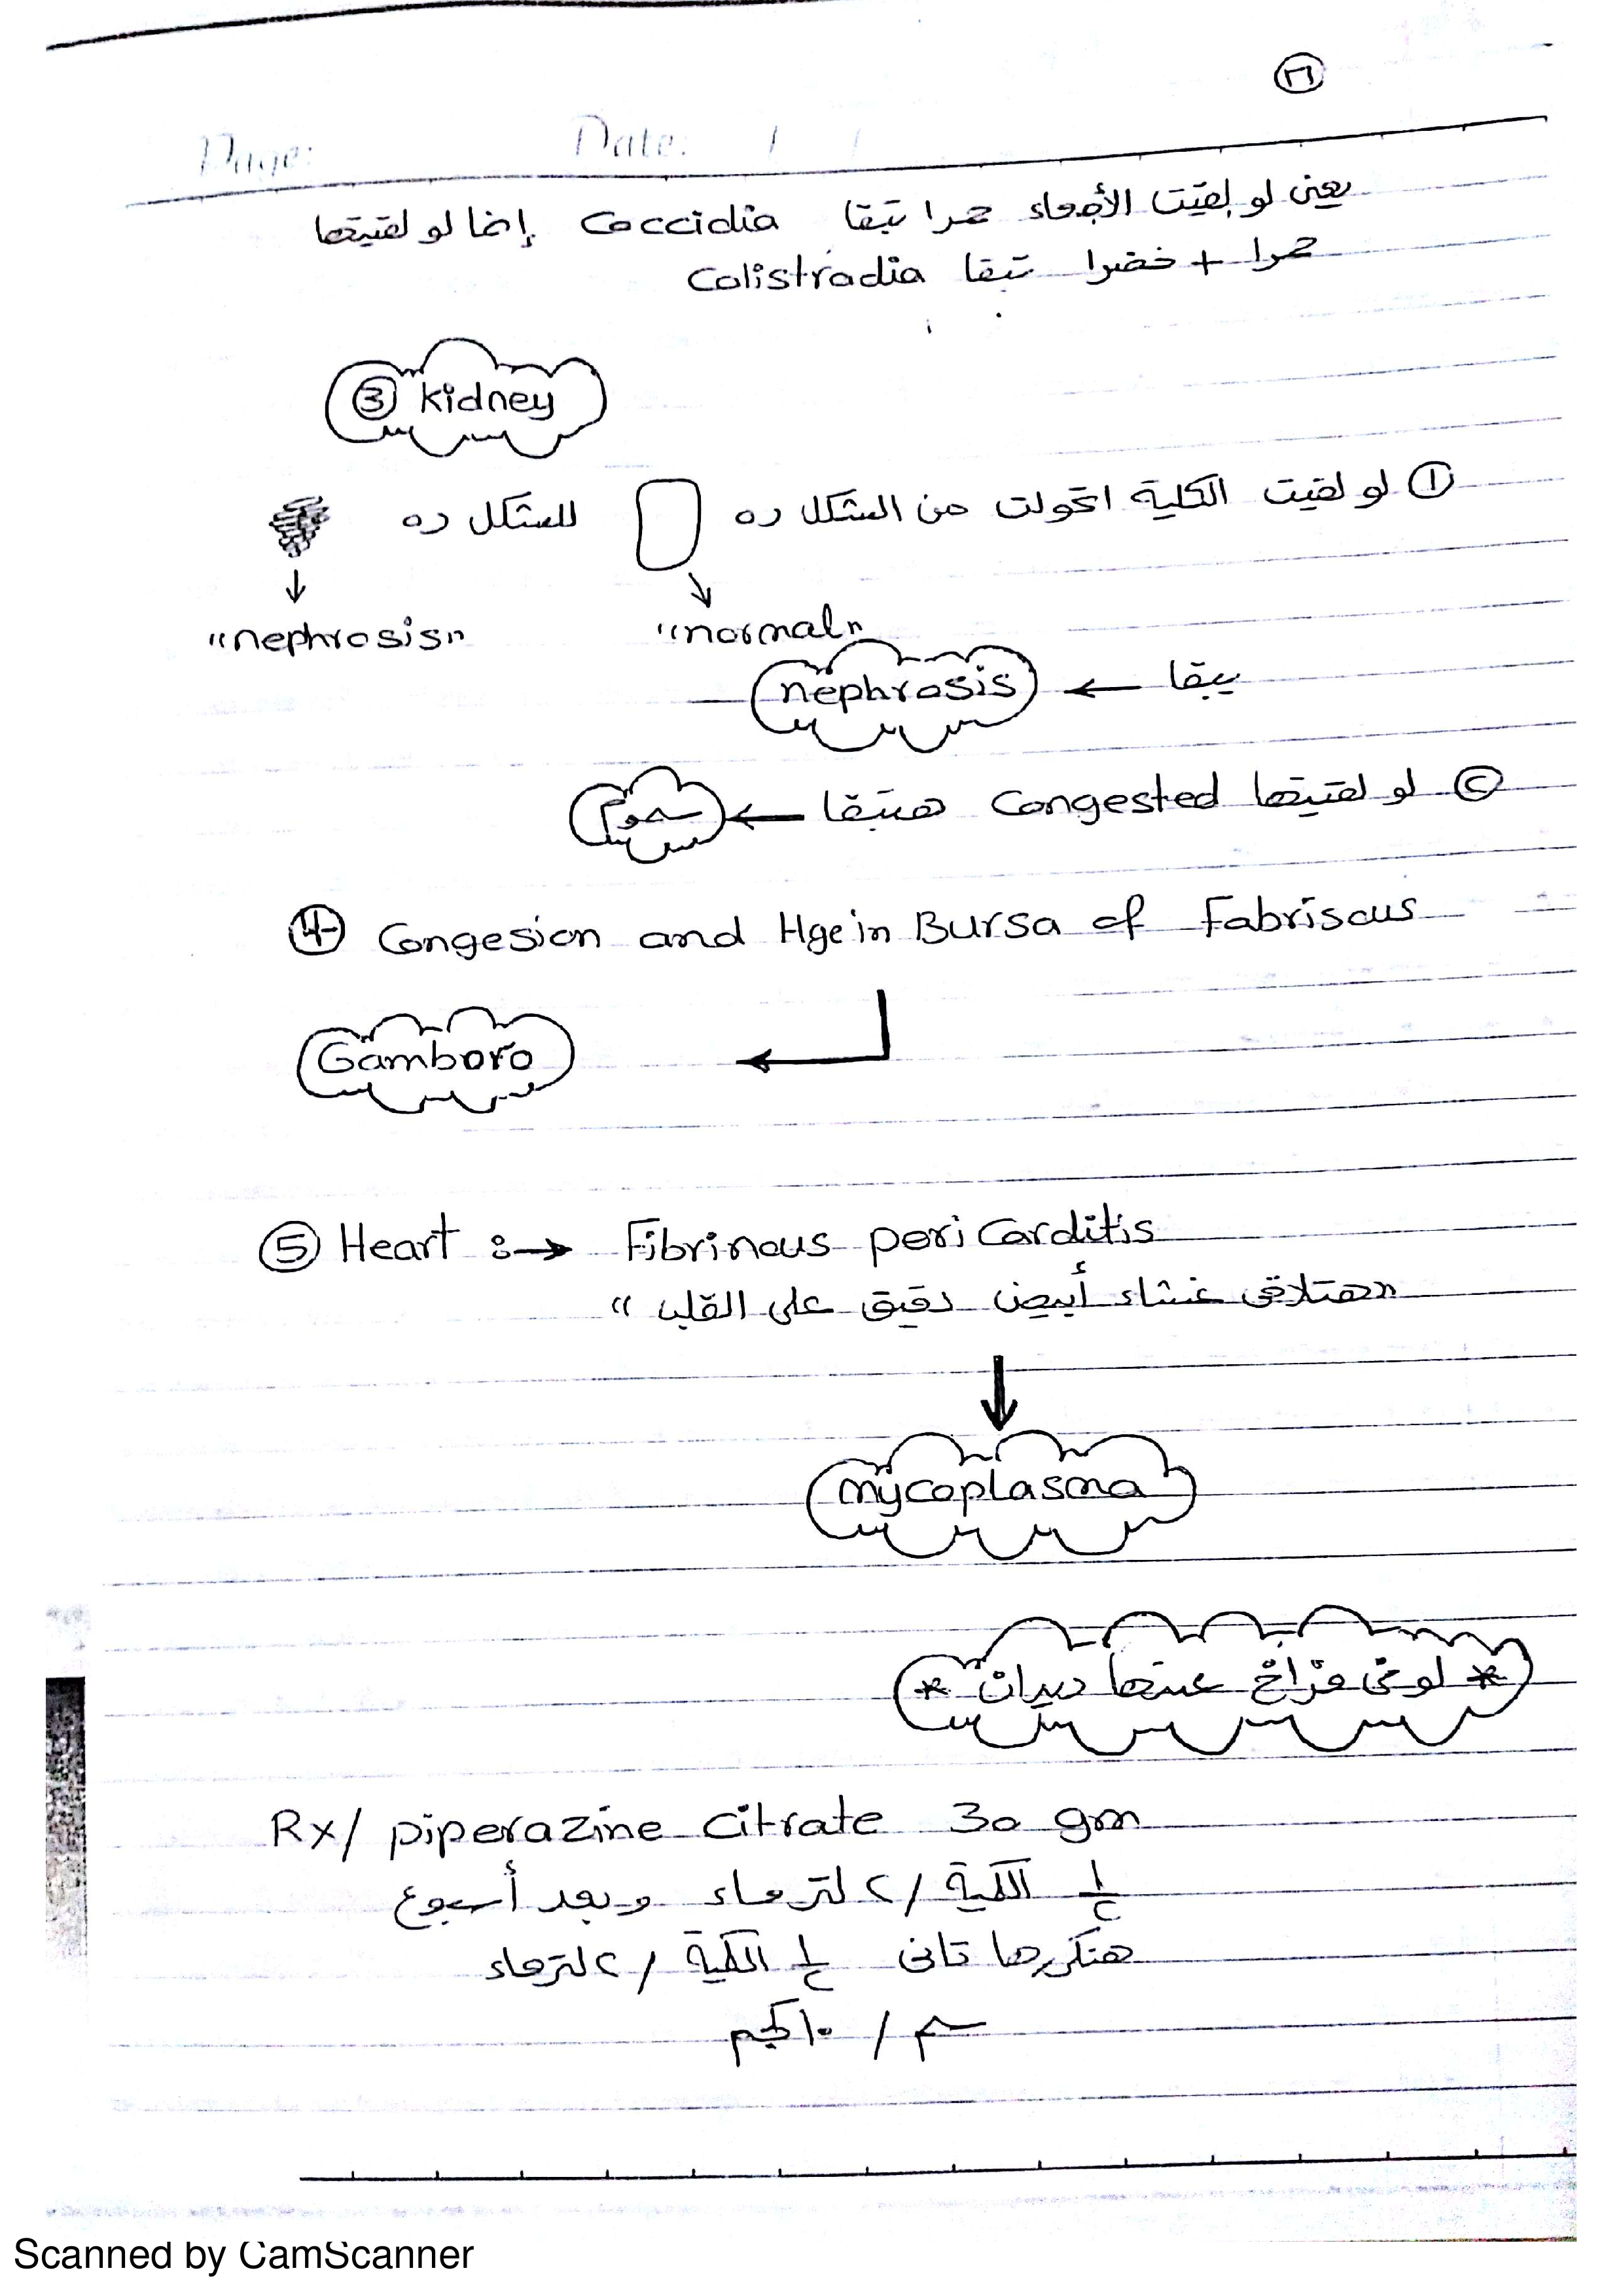 Page: Date: / /
يعنى لو بقيت الأمعاء حمرا تبقا Coccidia إنما لو لقيتها
حمرا + خضرا تبقا Colistradia
③ kidney
① لو لقيت الكلية اتحولت من الشكل ده للشكل ده
"nephrosis" "normal"
يبقا ← nephrosis
② لو لقيتها Congested هتبقا ← سموم
④ Congesion and Hge in Bursa of Fabriscus
Gamboro
⑤ Heart :→ Fibrinous peri Carditis
"هتلاقى غشاء أبيض رقيق على القلب"
mycoplasma
* لو فى فراخ عندها ديدان *
Rx/ piperazine Citrate 30 gm
½ الكمية / ٢ لتر ماء وبعد أسبوع
هنكررها تانى ½ الكمية / ٢ لتر ماء
Scanned by CamScanner